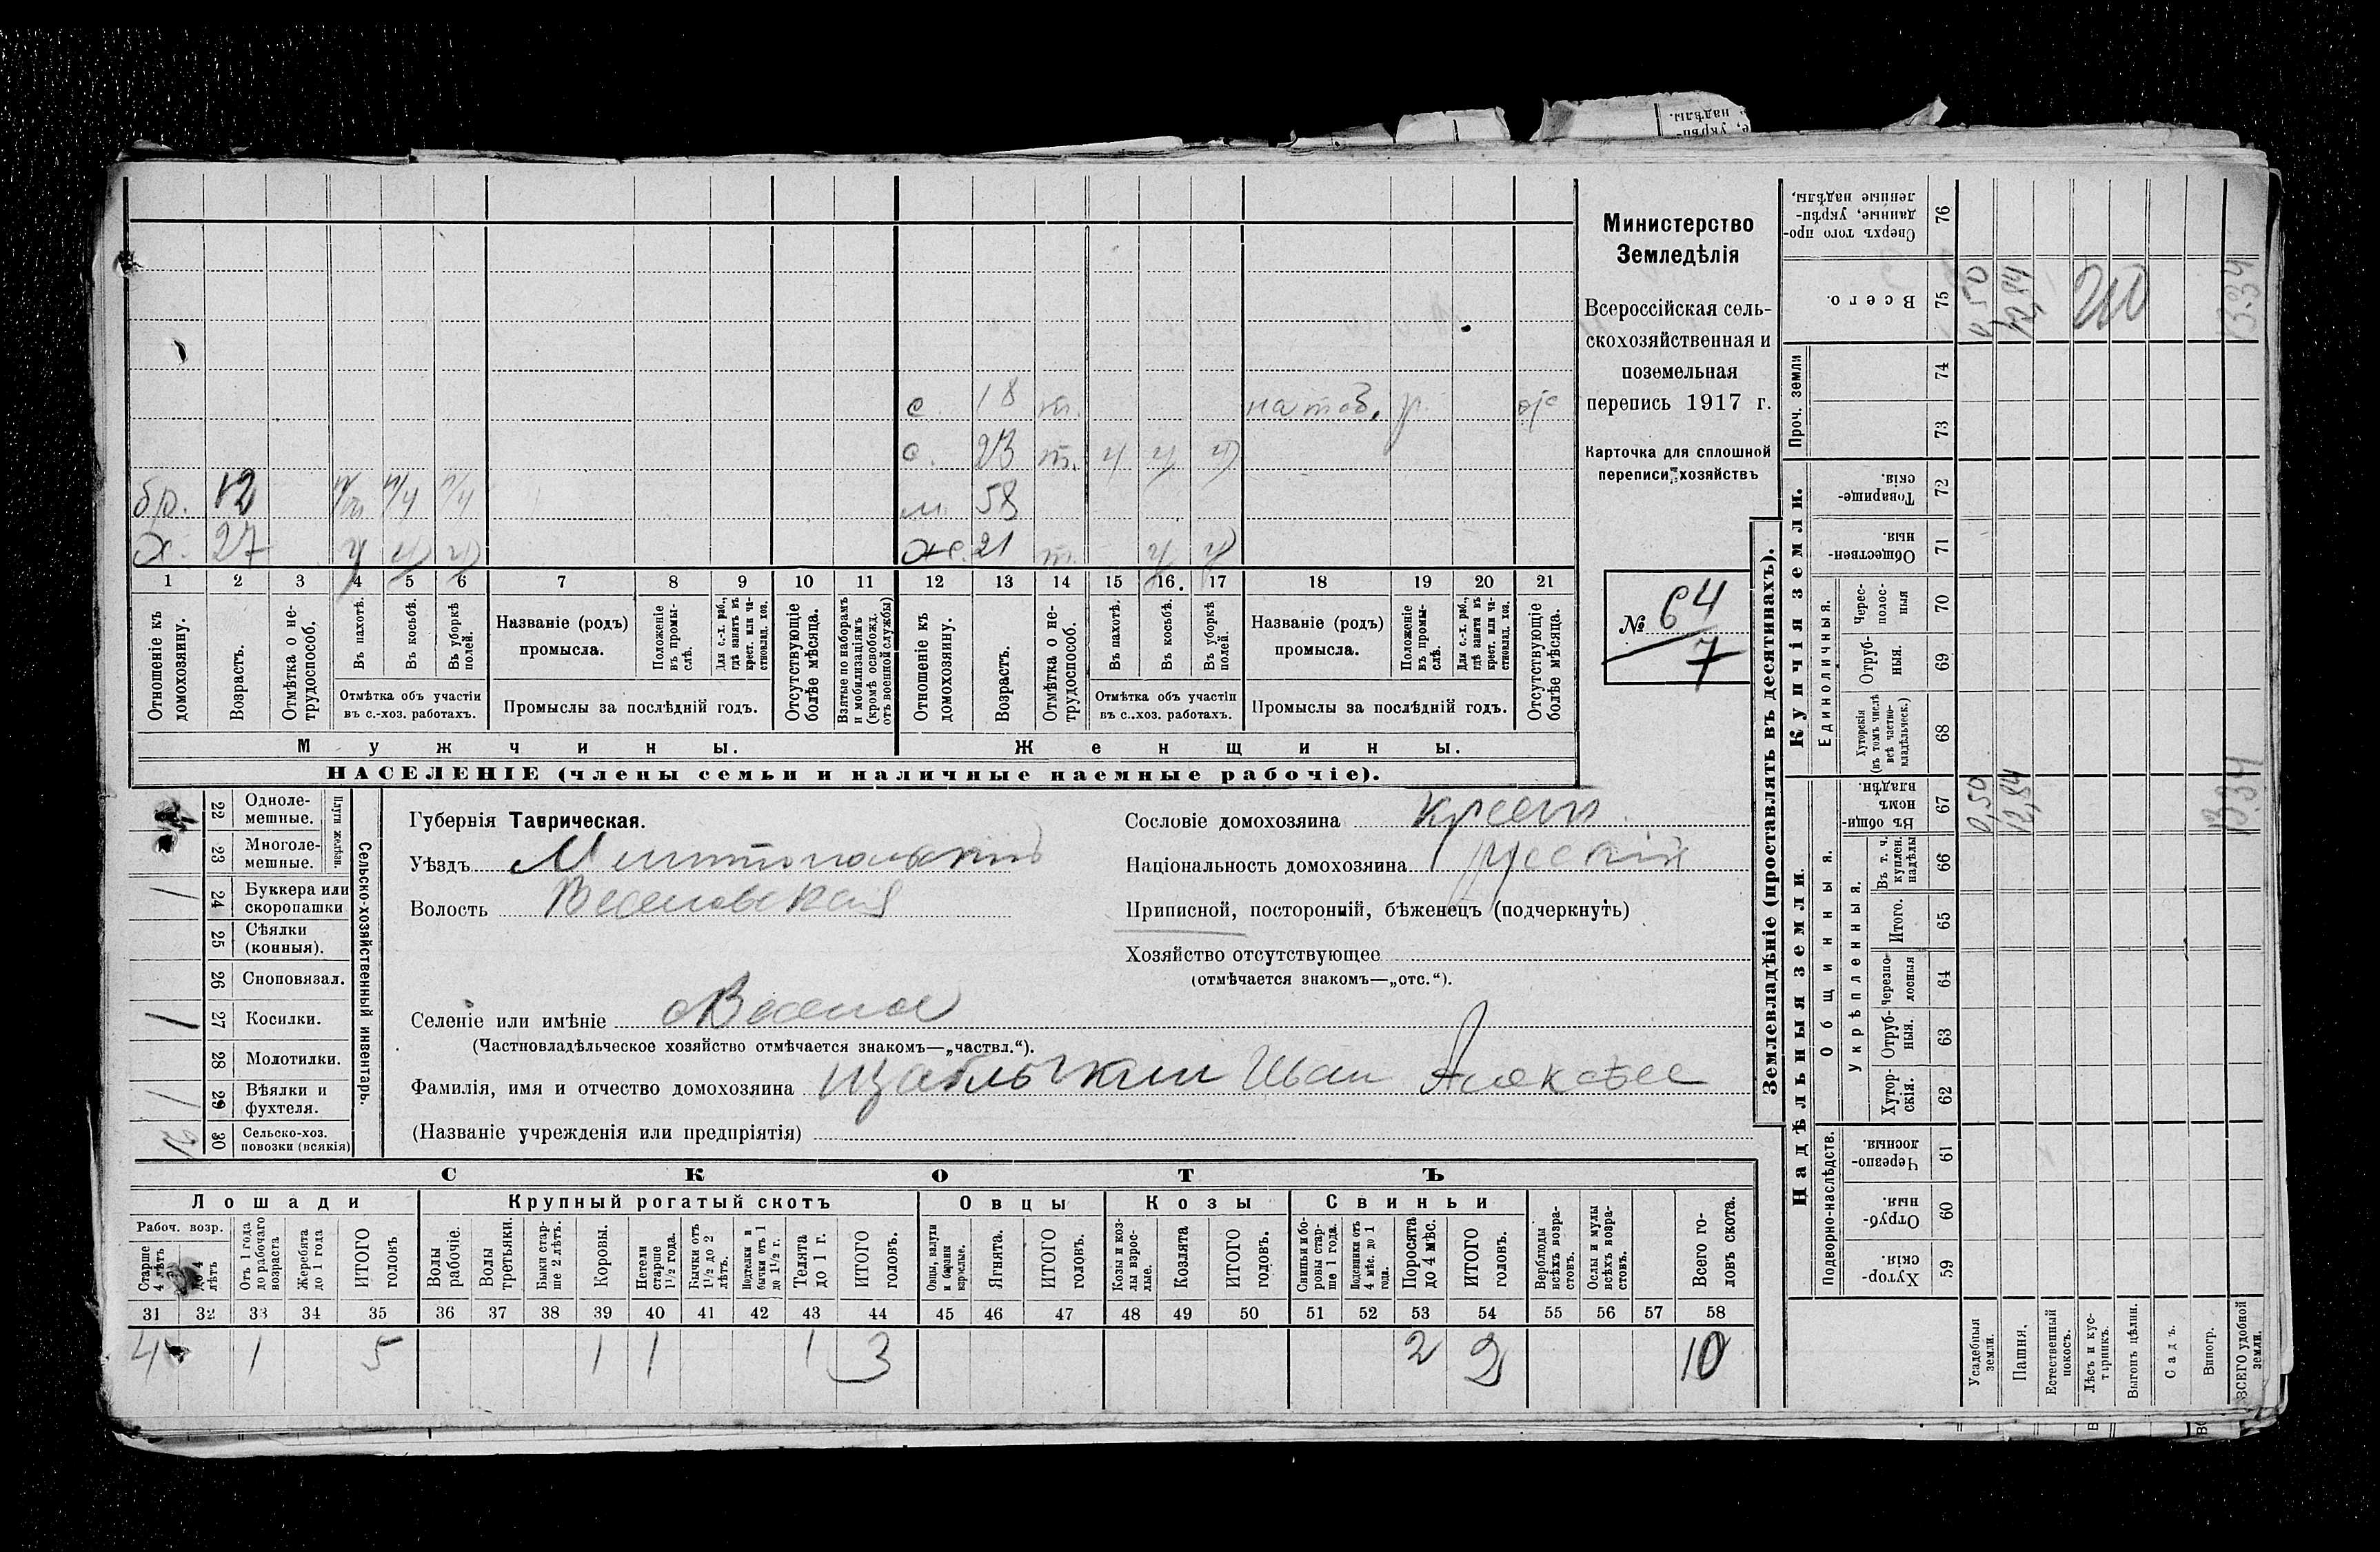 с. 18 т. р.
с. 23 т. ч ч ч
бр. 12 м. 58
х. 27 ч ч ч ж. 21 т. ч ч
1 2 3 4 5 6 7 8 9 10 11 12 13 14 15 16 17 18 19 20 21
Отношеніе къ домохозяину.
Возрастъ.
Отмѣтка о не-
трудоспособ.
Въ пахотѣ.
Въ косьбѣ.
Въ уборкѣ
полей.
Отмѣтка объ участіи
въ с.-хоз. работахъ.
Названіе (родъ)
промысла.
Положеніе
въ промы-
слѣ.
Для с.-х. раб.,
гдѣ занятъ въ
крест. или ча-
стновлад. хоз.
Промыслы за послѣдній годъ.
Отсутствующіе
болѣе мѣсяца.
Взятые по наборамъ
и мобилизаціямъ
(кромѣ освобожд.
отъ военной службы)
Отношеніе къ
домохозяину.
Возрастъ.
Отмѣтка о не-
трудоспособ.
Въ пахотѣ.
Въ косьбѣ.
Въ уборкѣ
полей.
Отмѣтка объ участіи
въ с..хоз. работахъ.
Названіе (родъ)
промысла.
Положеніе
въ промы-
слѣ.
Для с.-х. раб.,
гдѣ занята въ
крест. или ча-
стновлад. хоз.
Промыслы за послѣдній годъ.
Отсутствующіе
болѣе мѣсяца.
Мужчины.
Женщины.
НАСЕЛЕНІЕ (члены семьи и наличные наемные рабочіе).
Министерство
Земледѣлія
Всероссійская сель-
скохозяйственная и
поземельная
перепись 1917 г.
Карточка для сплошной
переписи хозяйствъ
№ 64
7
22 Одноле-
мешные.
23 Многоле-
мешные.
Плуги желѣзн.
24 Буккера или
скоропашки
25 Сѣялки
(конныя).
26 Сноповязал.
27 Косилки.
28 Молотилки.
29 Вѣялки и
фухтеля.
30 Сельско-хоз.
повозки (всякія)
Сельско-хозяйственный инвентарь.
Губернія Таврическая.
Уѣздъ Мелитопольскій
Волость Веселовская
Селеніе или имѣніе с Веселое
(Частновладѣльческое хозяйство отмѣчается знакомъ—„частвл.“).
Сословіе домохозяина крест.
Національность домохозяина русскій
Приписной, посторонній, бѣженецъ (подчеркнуть)
Хозяйство отсутствующее
(отмѣчается знакомъ—„отс.“).
Фамилія, имя и отчество домохозяина Щаблыкин Иван Алексѣев
(Названіе учрежденія или предпріятія)
СКОТЪ
Лошади Крупный рогатый скотъ Овцы Козы Свиньи
Рабоч. возр.
Старше
4 лѣтъ
до 4
лѣтъ
Отъ 1 года
до рабочаго
возраста
Жеребята
до 1 года
ИТОГО
головъ
Волы
рабочіе.
Волы
третьяки.
Быки стар-
ше 2 лѣтъ.
Коровы.
Нетели
старше
1½ года.
Бычки отъ
1½ до 2
лѣтъ.
Подтелки и
бычки отъ 1
до 1½ г.
Телята
до 1 г.
ИТОГО
головъ.
Овцы, валухи
и бараны
взрослые.
Ягнята.
ИТОГО
головъ.
Козы и коз-
лы взрос-
лые.
Козлята
ИТОГО
головъ.
Свиньи и бо-
ровы стар-
ше 1 года.
Подсвинки отъ
4 мѣс. до 1
года.
Поросята
до 4 мѣс.
ИТОГО
головъ.
Верблюды
всѣхъ возра-
стовъ.
Ослы и мулы
всѣхъ возра-
стовъ.
Всего го-
ловъ скота.
31 32 33 34 35 36 37 38 39 40 41 42 43 44 45 46 47 48 49 50 51 52 53 54 55 56 57 58
4 1 5 1 1 1 3 2 2 10
Землевладѣніе (проставлять въ десятинахъ).
Надѣльныя земли.
Купчія земли.
Проч. земли
Подворно-наслѣдств.
Общинныя.
Укрѣпленныя.
Единоличныя.
Сверхъ того про-
данные, укрѣп-
ленные надѣлы,
76
Всего.
75
74
73
Товарище-
скія.
72
Обществен-
ныя.
71
Черес-
полос-
ныя
70
Отруб-
ныя.
69
Хуторскія
(въ томъ числѣ
всѣ частно-
владѣльческ.)
68
Въ общин-
номъ
владѣн.
67
Въ т. ч.
куплен.
надѣлы
66
Итого.
65
Черезпо-
лосныя
64
Отруб-
ныя.
63
Хутор-
скія.
62
Черезпо-
лосныя.
61
Отруб-
ныя.
60
Хутор-
скія.
59
Усадебныя
земли.
Пашня.
Естественный
покосъ.
Лѣсъ и кус-
тарникъ.
Выгонъ цѣлин.
Садъ.
Виногр.
ВСЕГО удобной
земли.
0,50 12,84 13.34
0,50 12,84 13.34